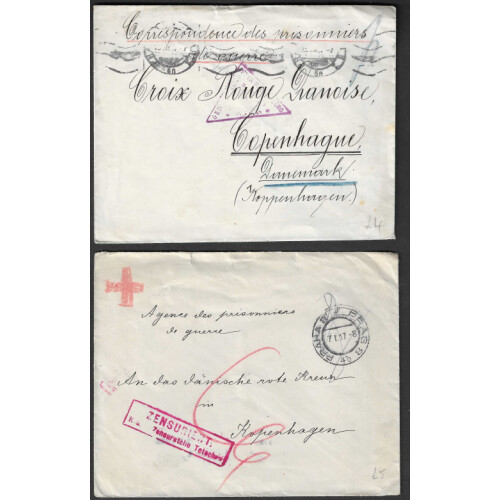 Correspondence des prisonniers
de guerre
Croix Rouge Danoise,
Copenhague.
Danemark.
(Koppenhagen)
24
Agence des prisonniers
de guerre
PRAHA PRAG
7 I 17 - 8
An das dänische rote Kreuz
in
Kopenhagen
ZENSURIERT.
Zensurstelle Tetschen
25